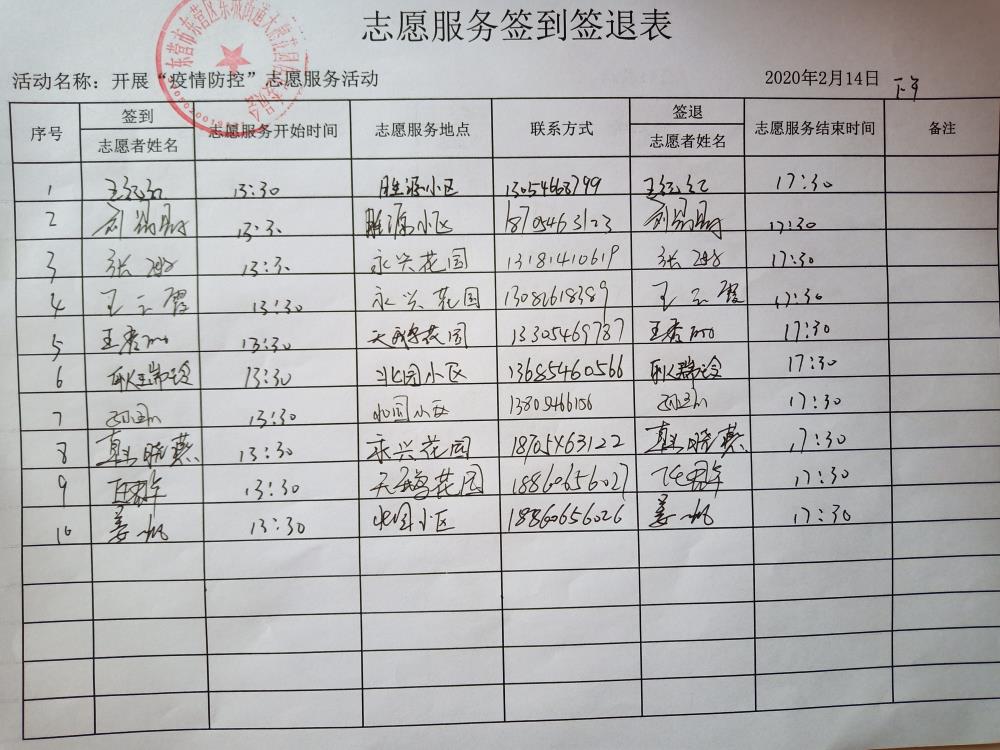 志愿服务签到签退表
活动名称：开展“疫情防控”志愿服务活动 2020年2月14日 下午
序号 签到 志愿者姓名 志愿服务开始时间 志愿服务地点 联系方式 签退 志愿者姓名 志愿服务结束时间 备注
1 王红红 13:30 胜源小区 13054668799 王红红 17:30
2 13:30 胜源小区 18705463123 17:30
3 张 13:30 永兴花园 13181410619 张 17:30
4 王云霞 13:30 永兴花园 13082618389 王云霞 17:30
5 王秀 13:30 天鹅花园 13305469787 王秀 17:30
6 耿瑞玲 13:30 北园小区 13685460566 耿瑞玲 17:30
7 孙 13:30 北园小区 13805466106 孙 17:30
8 晓燕 13:30 永兴花园 18705463122 晓燕 17:30
9 13:30 天鹅花园 18860656027 17:30
10 姜帆 13:30 北园小区 18860656026 姜帆 17:30